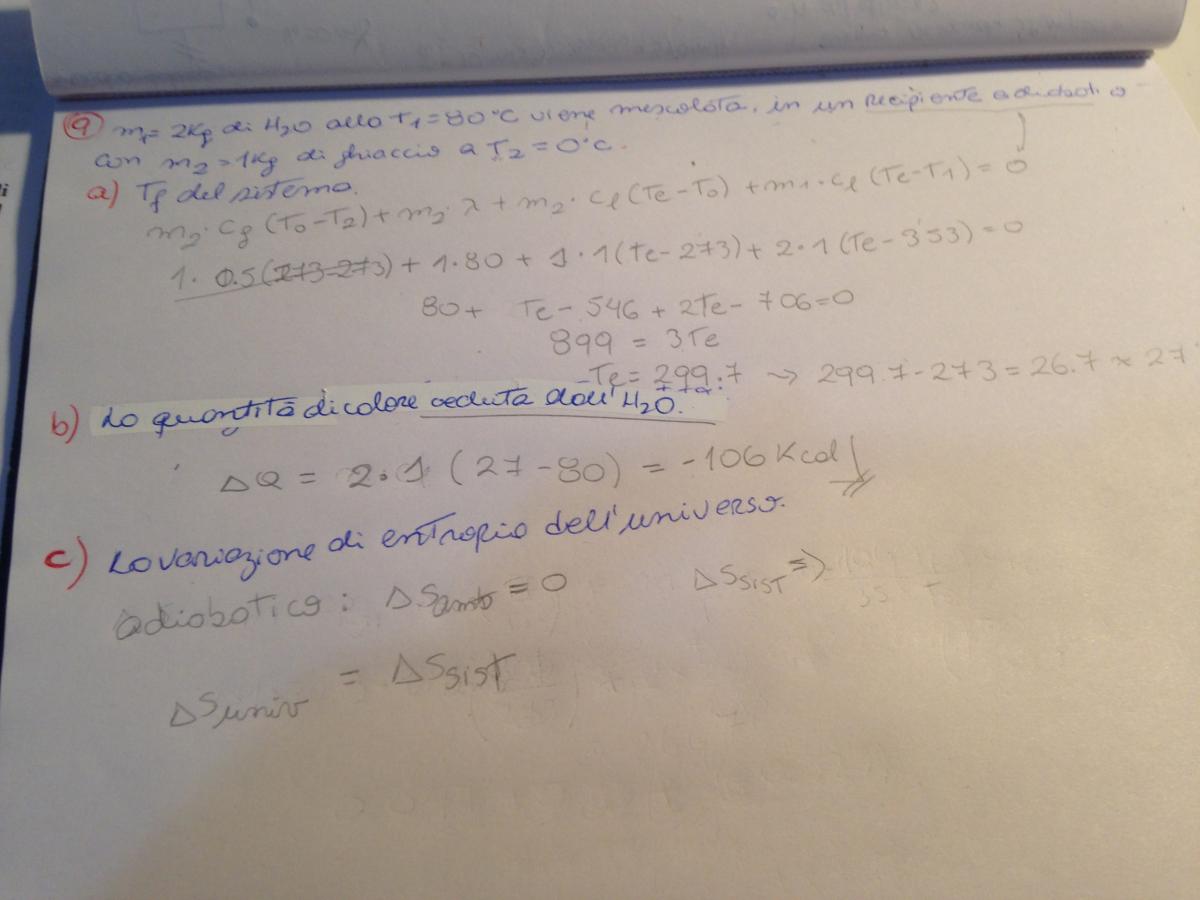 9) m₁= 2Kg di H₂O alla T₁=80°C viene mescolata, in un recipiente adiabatico
con m₂=1Kg di ghiaccio a T₂=0°C.
a) Tf del sistema.
m₂·cg(T₀-T₂)+m₂·λ+m₂·cl(Te-T₀)+m₁·cl(Te-T₁)=0
1·0.5(273-273)+1·80+1·1(Te-273)+2·1(Te-353)=0
80+ Te-546+2Te-706=0
899=3Te
Te=299.7 → 299.7-273=26.7 ≈ 27
b) La quantità di calore ceduta dall'H₂O.
ΔQ = 2·1 (27-80) = -106 Kcal
c) La variazione di entropia dell'universo.
adiabatico: ΔSamb=0 ΔSSIST =>
ΔSuniv = ΔSSIST